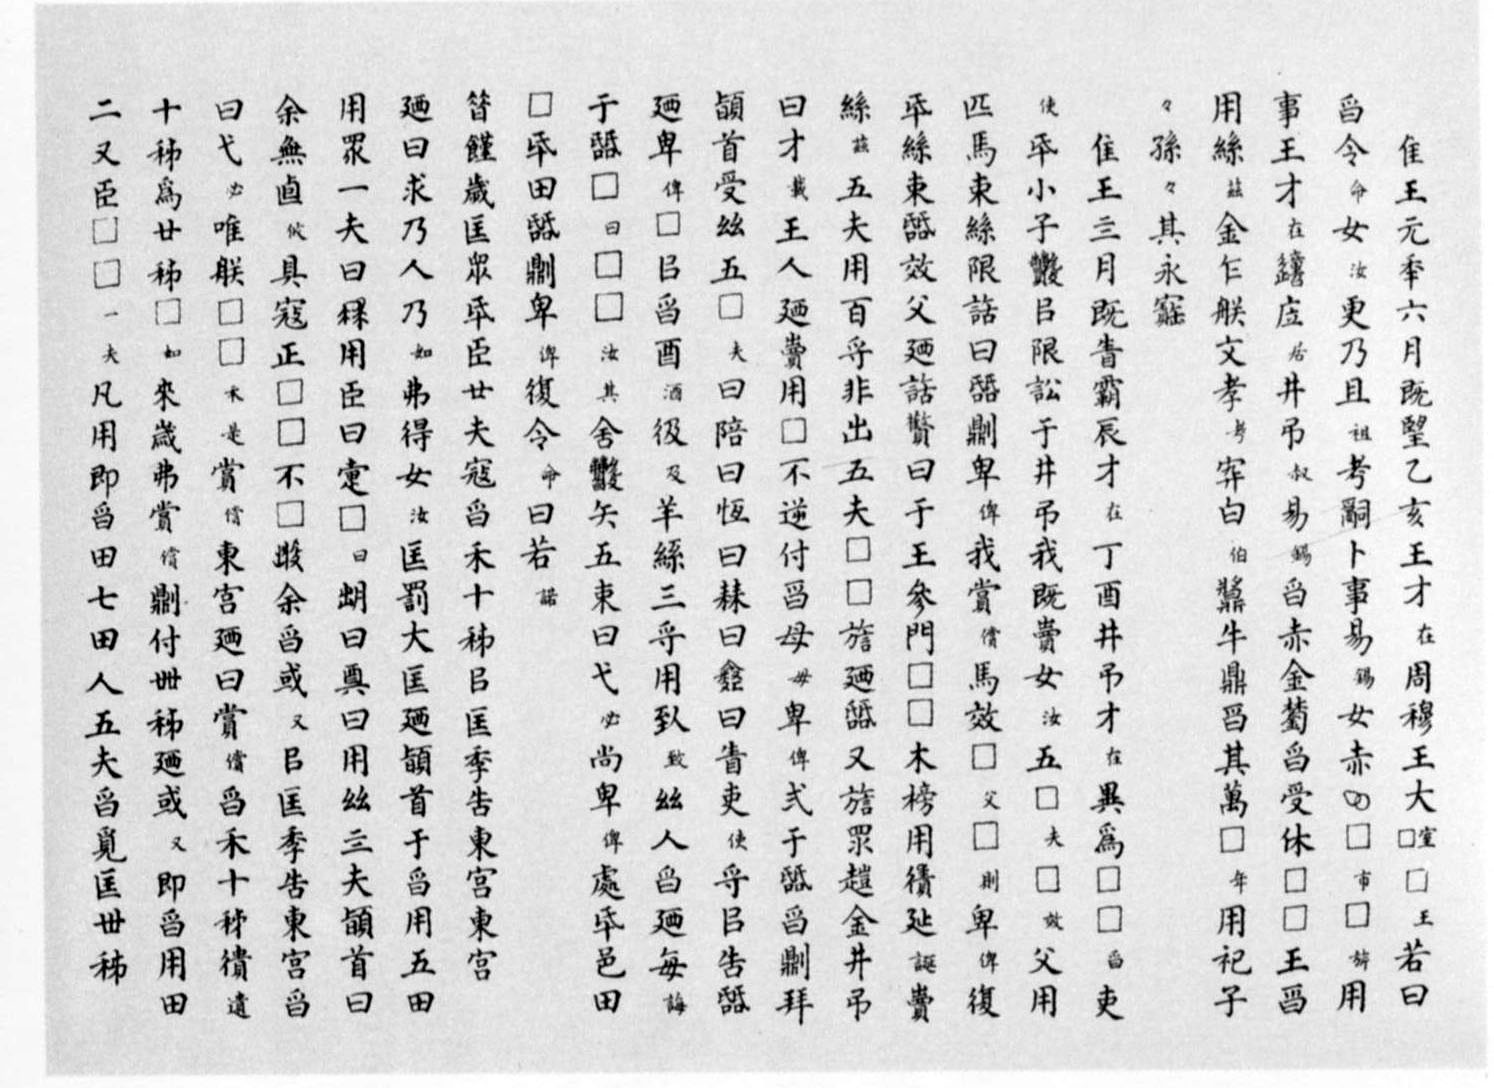 隹王元年六月既朢乙亥王才在周穆王大□室□王若曰
曶令命女汝更乃且祖考嗣卜事易錫女赤□市□旂用
事王才在應居井弔叔易錫曶赤金曶受休□□王曶
用絲茲金乍朕文孝考宄白伯牛鼎曶其萬□年用祀子
々孫々其永寶
隹王三月既眚霸辰才在丁酉井弔才在異爲□□曶吏
使氒小子㠯限訟于井弔我既賣女汝五□夫□效父用
匹馬束絲限詻曰䛗鼎卑俾我賞償馬效□父□則卑俾復
氒絲束䛗效父廼詻曰于王參門□□木榜用徝延誕賣
絲茲五夫用百寽非出五夫□□旝廼䛗又旝眔趞金井弔
曰才載王人廼賣用□不逆付曶母毋卑俾弍于䛗曶鼎拜
䭫首受丝五□夫曰陪曰恆曰䅘曰曰眚吏使寽㠯告䛗
廼卑俾□㠯曶酉酒彶及羊絲三寽用致丝人曶廼每誨
于䛗□曰□□汝其舍矢五束曰弋必尚卑俾處氒邑田
□氒田䛗鼎卑俾復令命曰若諾
昔饉歲匡眾氒臣廿夫寇曶禾十秭㠯匡季告東宮東宮
廼曰求乃人乃如弗得女汝匡罰大匡廼䭫首于曶用五田
用眾一夫曰用臣曰疐□曰朏曰奠曰用丝三夫䭫首曰
余無卣攸具寇正□□不□余曶或又㠯匡季告東宮曶
曰弋必唯朕□□禾是賞償東宮廼曰賞償曶禾十秭徝遺
十秭爲廿秭□如來歲弗賞償鼎付卌秭廼或又即曶用田
二又臣□□一夫凡用即曶田七田人五夫曶覓匡卅秭